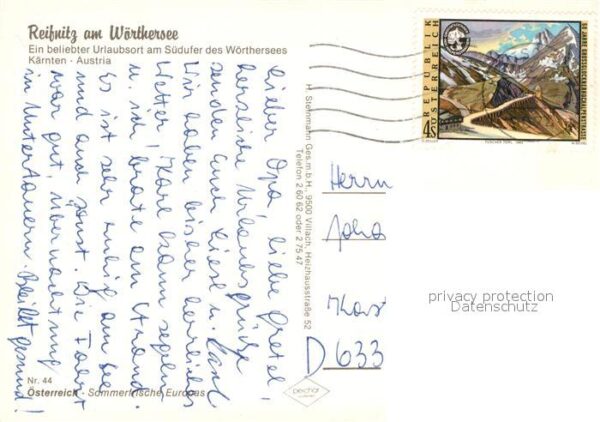 Reifnitz am Wörthersee
Ein beliebter Urlaubsort am Südufer des Wörthersees
Kärnten - Austria
Lieber Opa, liebe Gretel,
herzliche Urlaubsgrüße
senden euch Liesel u. Karl
Wir haben bisher herrliches
Wetter! Karl kann segeln
u. ich brate am Strand.
Es ist sehr ruhig am See
und auch sonst. Die Fahrt
war gut, Übernachtung
in Untertauern. Bleibt gesund!
Nr. 44
Österreich - Sommerfrische Europas
H. Steinmann Ges.m.b.H., 9500 Villach, Heizhausstraße 52
Telefon 2 60 62 oder 2 75 47
REPUBLIK
ÖSTERREICH
4S
50 JAHRE GROSSGLOCKNER HOCHALPENSTRASSE
Herrn
D 633
privacy protection
Datenschutz